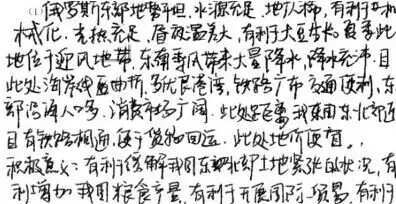 (1) 俄罗斯东部地势平坦,水源充足,地广人稀,有利于机
械化,光热充足,昼夜温差大,有利于大豆生长。夏季此
地位于迎风地带,东南季风带来大量降水,降水充沛,且
此处海岸线曲折,多优良港湾,铁路广布,交通便利,东
部沿海人口多,消费市场广阔,此处距离我国东北部近
且有铁路相通,便于货物回运。此处地价便宜。
积极意义:有利于缓解我国东北部土地紧张的状况,有
利增加我国粮食产量,有利于开展国际贸易,有利于